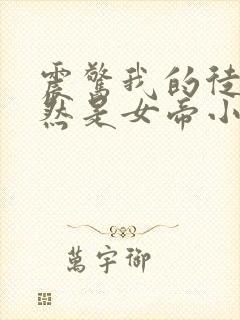 震驚我的徒
然是女帝小
萬宇御